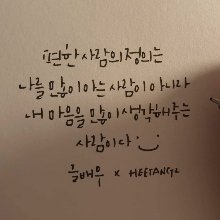 편한 사람의 정의는
나를 많이 아는 사람이 아니라
내 마음을 많이 생각해주는
사람이다
글배우 × HEETANG72